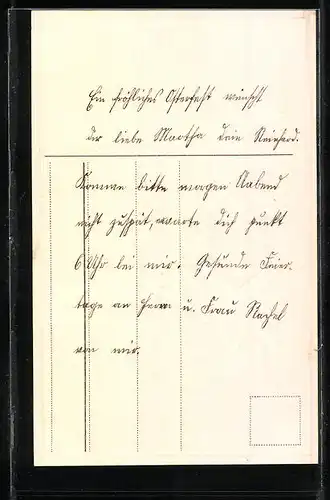 Ein fröhliches Osterfest wünscht
der liebe Martha dein Reinhard.
Komme bitte morgen Aabend
nicht zuspät, waarte dich punkt
6 Uhr bei mir. Gesunde Feier-
tage an Herrn u. Frau Nachel
von mir.